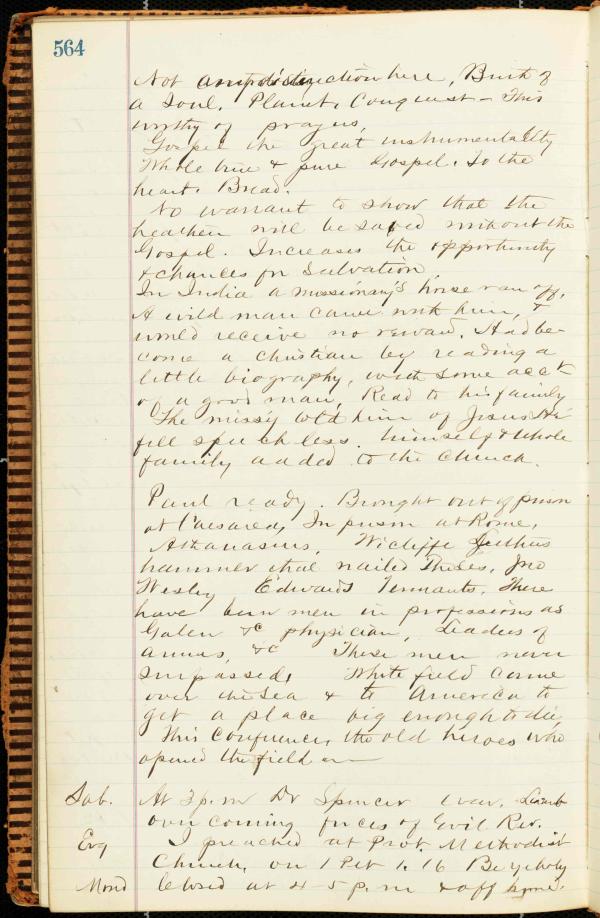 564
Not destruction here, Birth of
a Soul, Planet, Conquest - This
worthy of prayers,
Gospel the great instrumentality
Whole true & pure Gospel. To the
heart. Bread.
No warrant to show that the
heathen will be saved without the
Gospel. Increases the opportunity
& chances for Salvation,
In India a missionary's horse ran off,
A wild man came with him, &
would receive no reward. Had be-
come a Christian by reading a
little biography, with some acct
of a good man, Read to his family
The miss'y told him of Jesus He
fell speechless. himself & whole
family added to the Church.
Paul ready. Brought out of prison
at Caesarea, In prison at Rome,
Athanasius, Wicliffe Luthers
hammer that nailed Theses, Jno
Wesley Edwards Tennants, There
have been men in professions as
Galen &c physician, Leaders of
armies, &c These men never
surpassed, Whitefield came
over the sea & to America to
get a place big enough to die,
This Conference, the old heroes who
opened the field
Sab. At 3 p.m Dr Spencer war, Lamb
overcoming forces of Evil Rev.
Evg I preached at Prot. Methodist
Church, on 1 Pet 1. 16 Be ye holy
Mond closed at 4-5 p.m & off home.